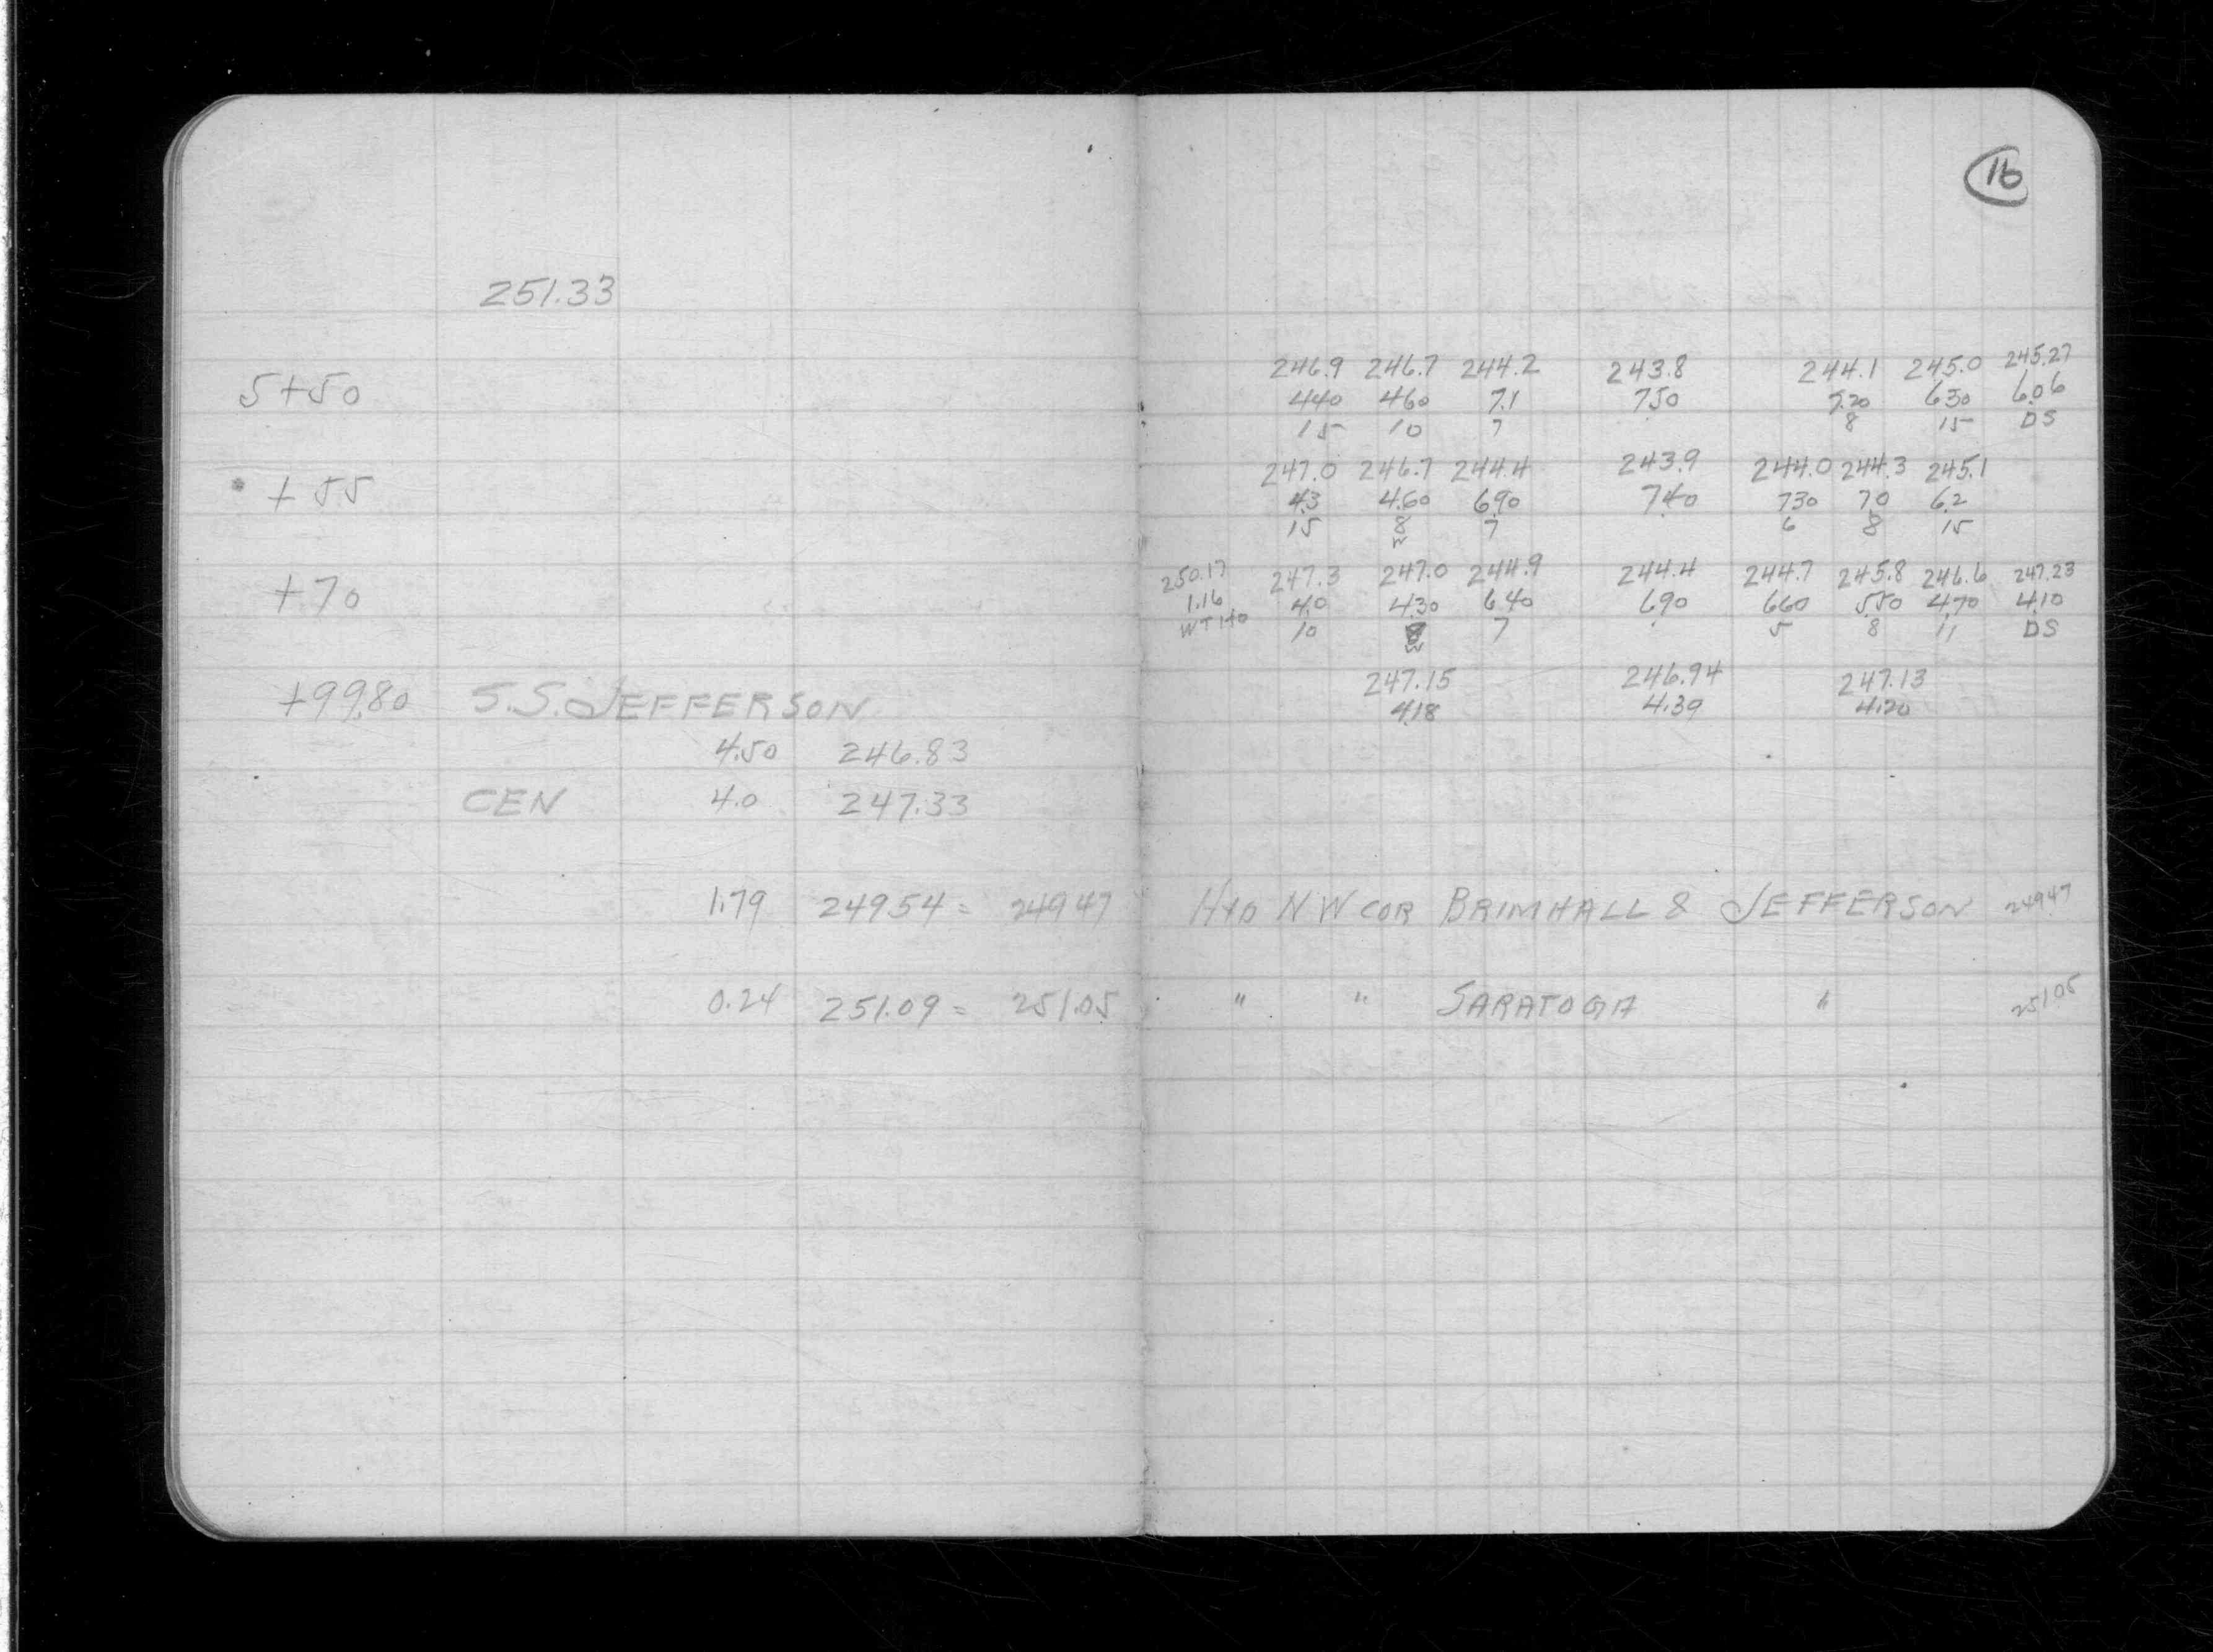 16
251.33
246.9 246.7 244.2 243.8 244.1 245.0 245.27
5+50 440 460 7.1 750 7.20 630 6.06
15 10 7 8 15 DS
247.0 246.7 244.4 243.9 244.0 244.3 245.1
+55 4.3 4.60 690 740 730 70 62
15 8 7 6 8 15
W
250.17 247.3 247.0 244.9 244.4 244.7 245.8 246.6 247.23
+70 1.16 4.0 430 640 690 660 550 470 4.10
WT HYD 10 8 7 5 8 11 DS
W
247.15 246.94 247.13
+99.80 S.S. JEFFERSON 4.18 4.39 4.20
4.50 246.83
CEN 4.0 247.33
1.79 249.54 = 249.47 HYD N W COR BRIMHALL & JEFFERSON 249.47
0.24 251.09 = 251.05 " " SARATOGA " 251.05